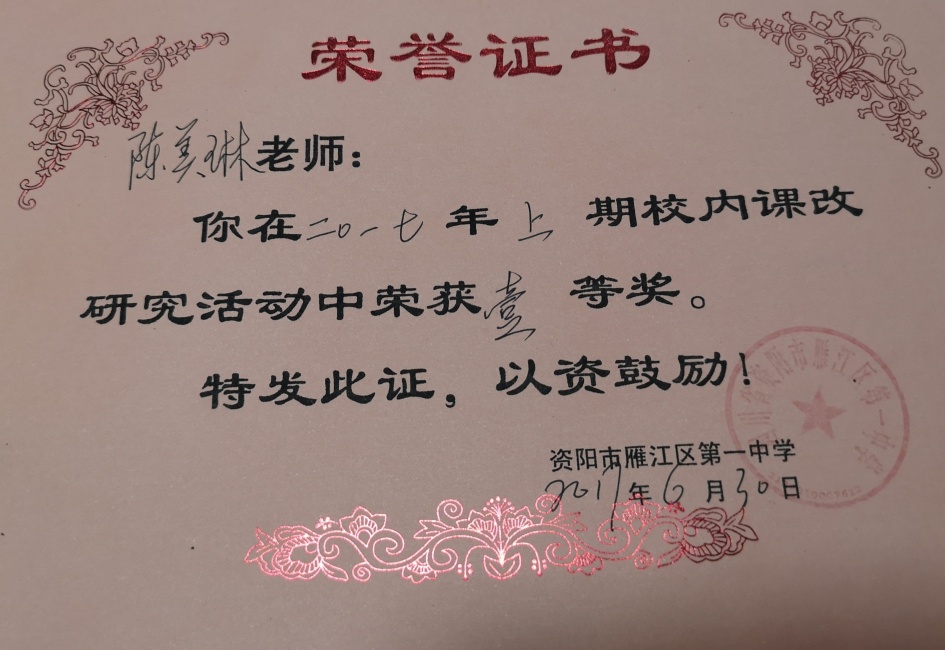 荣誉证书
陈美琳老师：
你在二〇一七年上期校内课改
研究活动中荣获壹等奖。
特发此证，以资鼓励！
四川省资阳市雁江区第一中学
资阳市雁江区第一中学
2017年6月30日